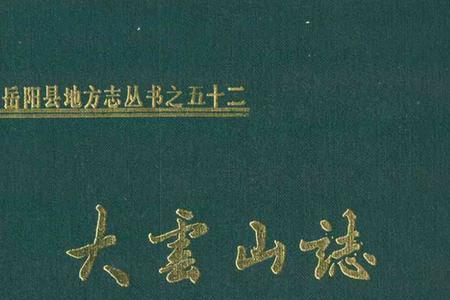 岳阳县地方志丛书之五十二
大雲山誌